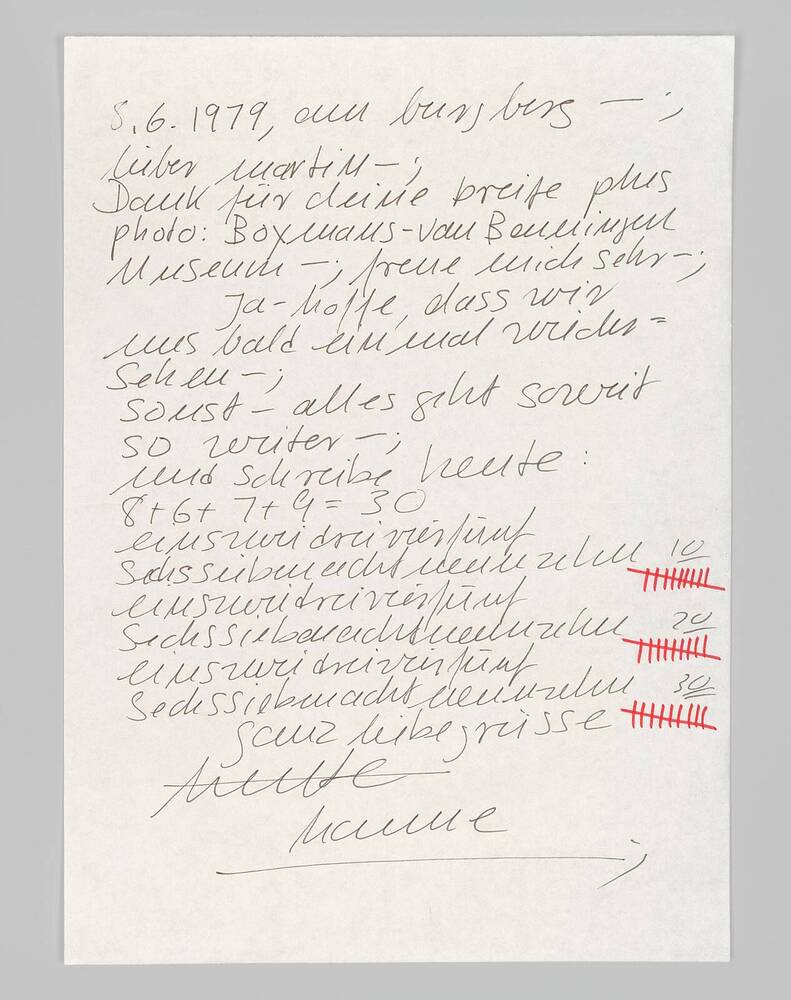 8.6.1979, am burgberg —;
lieber martin —;
Dank für deine breife plus
photo: Boymans-van Beuningen
Museum —; freue mich sehr —;
Ja - hoffe, dass wir
uns bald einmal wieder=
sehen —;
sonst — alles geht soweit
so weiter —;
und schreibe heute:
8+6+7+9=30
einszweidreivierfünf
sechssiebenachtneunzehn 10
einszweidreivierfünf
sechssiebenachtneunzehn 20
einszweidreivierfünf
sechssiebenachtneunzehn 30
ganz liebe grüsse
heute
hanne